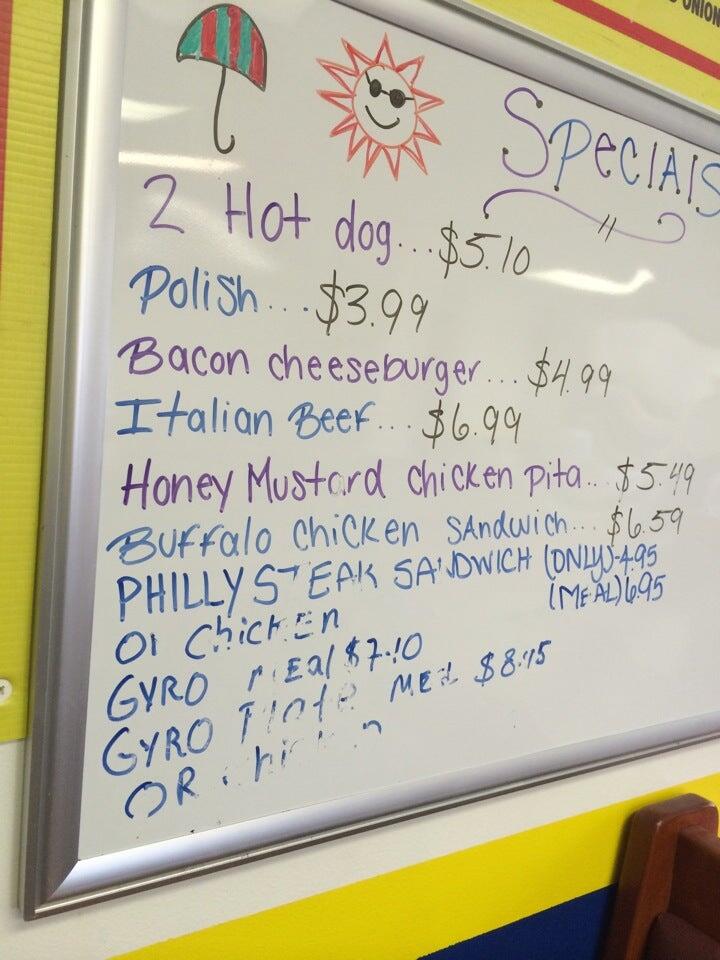 ONION
Specials
2 Hot dog...$5.10
Polish...$3.99
Bacon cheeseburger...$4.99
Italian Beef...$6.99
Honey Mustard chicken pita...$5.49
Buffalo chicken sandwich...$6.59
PHILLY STEAK SANDWICH (ONLY)-4.95
(MEAL)6.95
Or Chicken
GYRO MEal $7.10
GYRO Plate MEL
OR chicken